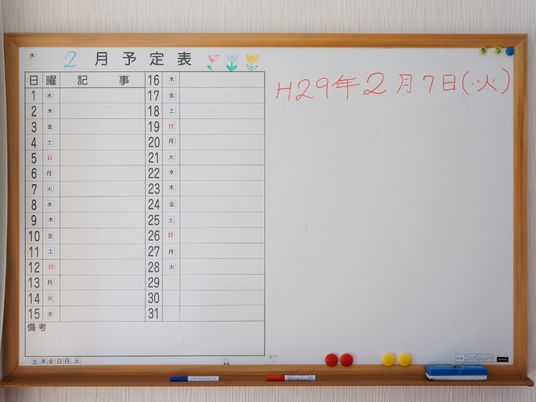 木
2月予定表
日 曜 記事 16 木
1 水 17 金
2 木 18 土
3 金 19 日
4 土 20 月
5 日 21 火
6 月 22 水
7 火 23 木
8 水 24 金
9 木 25 土
10 金 26 日
11 土 27 月
12 日 28 火
13 月 29
14 火 30
15 水 31
備考
土木金日月火
H29年2月7日(火)